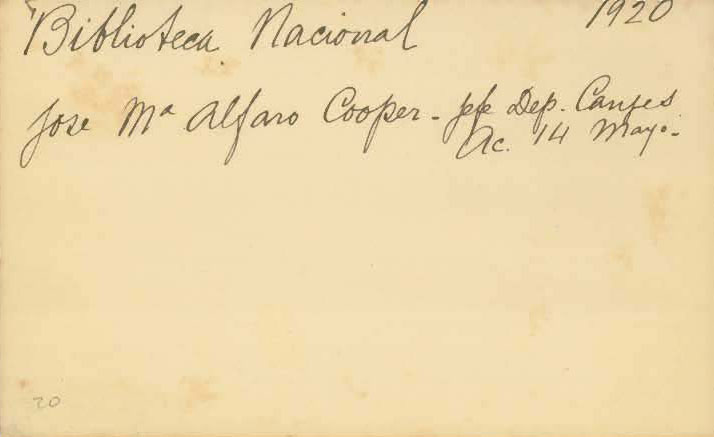 Biblioteca Nacional 1920
Jose Mª Alfaro Cooper - jefe Dep. Canjes
Ac. 14 Mayo.
20